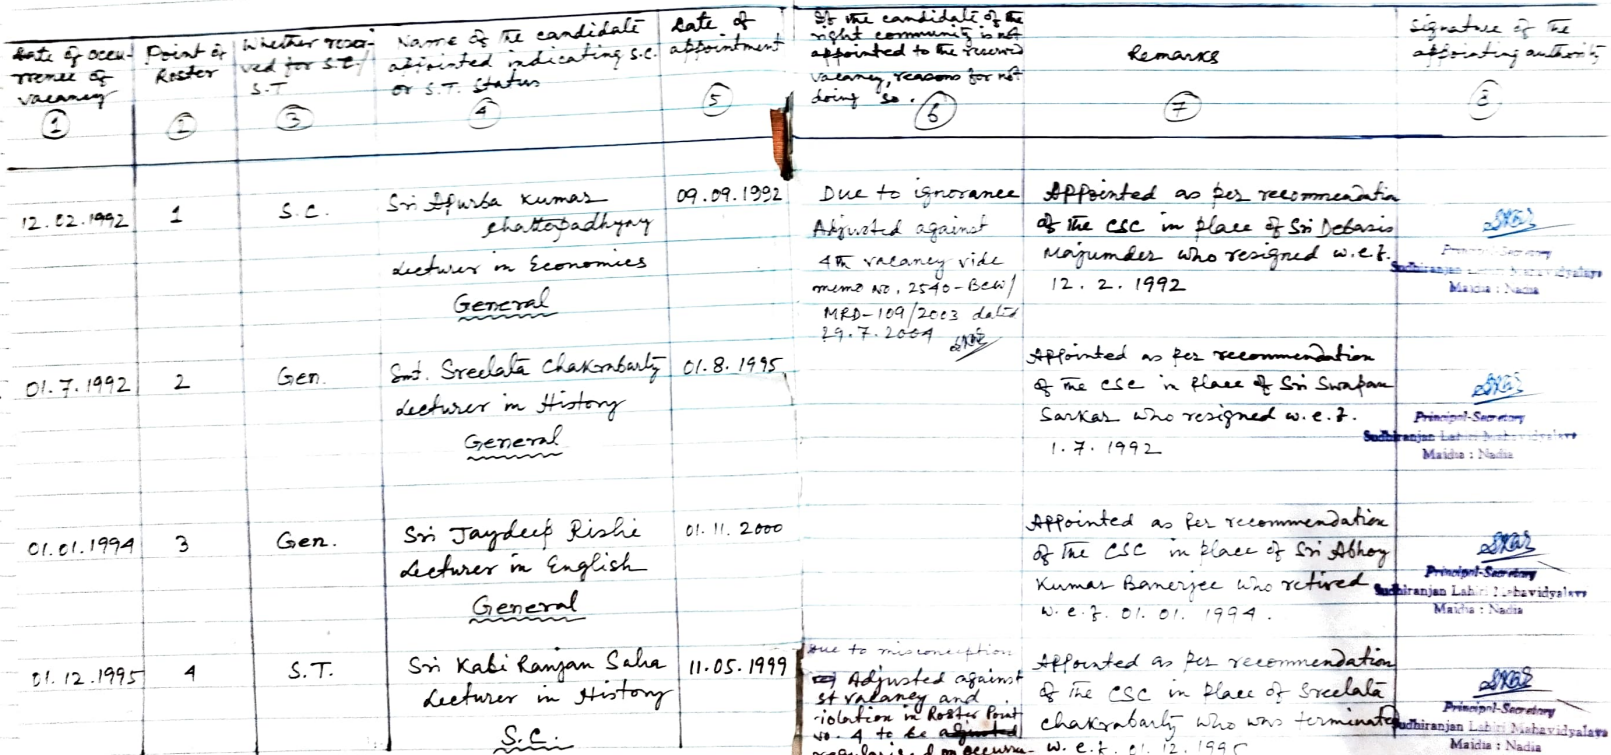 Date of occu-
rrence of
vacancy
1
Point of
Roster
2
Whether reser-
ved for S.C./
S.T
3
Name of the candidate
appointed indicating S.C.
or S.T. Status
4
Date of
appointment
5
If the candidate of the
right community is not
appointed to the reserved
vacancy, reasons for not
doing so.
6
Remarks
7
Signature of the
appointing authority
8
12.02.1992
1
S.C.
Sri Apurba Kumar
Chattopadhyay
Lecturer in Economics
General
09.09.1992
Due to ignorance
Adjusted against
4th vacancy vide
memo No. 2540-BCW/
MRD-109/2003 dated
29.7.2004
Appointed as per recommendation
of the CSC in place of Sri Debasis
Majumder who resigned w.e.f.
12.2.1992
Principal-Secretary
Sudhiranjan Lahiri Mahavidyalaya
Majdia : Nadia
01.7.1992
2
Gen.
Smt. Sreelata Chakrabarty
Lecturer in History
General
01.8.1995
Appointed as per recommendation
of the CSC in place of Sri Swapan
Sarkar who resigned w.e.f.
1.7.1992
Principal-Secretary
Sudhiranjan Lahiri Mahavidyalaya
Majdia : Nadia
01.01.1994
3
Gen.
Sri Jaydeep Rishi
Lecturer in English
General
01.11.2000
Appointed as per recommendation
of the CSC in place of Sri Abhoy
Kumar Banerjee who retired
w.e.f. 01.01.1994.
Principal-Secretary
Sudhiranjan Lahiri Mahavidyalaya
Majdia : Nadia
01.12.1995
4
S.T.
Sri Kabi Ranjan Saha
Lecturer in History
S.C.
11.05.1999
Due to misconception
Adjusted against
st vacancy and
iolation in Roster Point
No. 4 to be adjusted
Appointed as per recommendation
of the CSC in place of Sreelata
Chakrabarty who was terminated
w.e.f. 01.12.1995
Principal-Secretary
Sudhiranjan Lahiri Mahavidyalaya
Majdia : Nadia